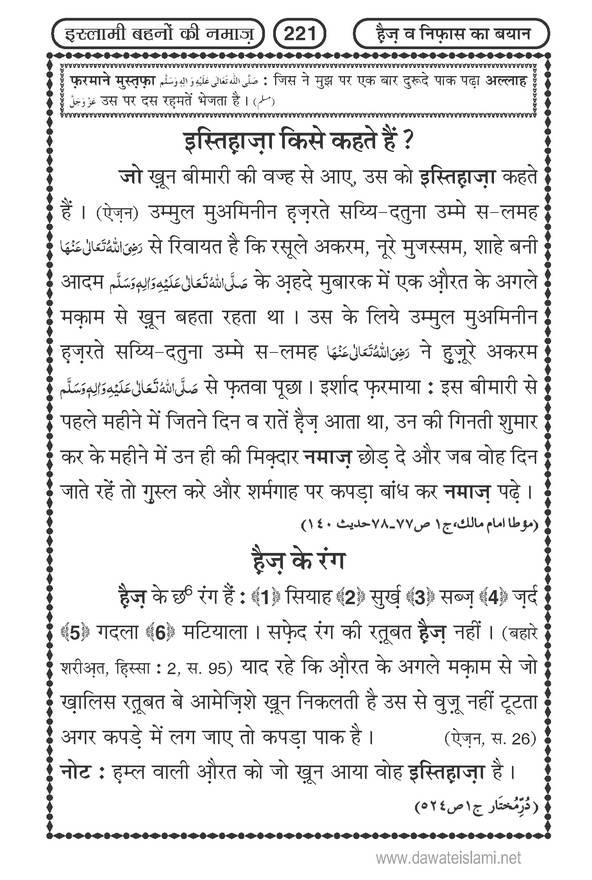 इस्लामी बहनों की नमाज़ 221 हैज़ व निफ़ास का बयान
फ़रमाने मुस्तफ़ा صَلَّى اللهُ تَعَالٰى عَلَيْهِ وَاٰلِهٖ وَسَلَّم : जिस ने मुझ पर एक बार दुरूदे पाक पढ़ा अल्लाह
عَزَّوَجَلَّ उस पर दस रहमतें भेजता है । (مسلم)
इस्तिह़ाज़ा किसे कहते हैं ?
जो ख़ून बीमारी की वज्ह से आए, उस को इस्तिह़ाज़ा कहते
हैं । (ऐज़न) उम्मुल मुअमिनीन ह़ज़रते सय्यि-दतुना उम्मे स-लमह
رَضِىَ اللهُ تَعَالٰى عَنْهَا से रिवायत है कि रसूले अकरम, नूरे मुजस्सम, शाहे बनी
आदम صَلَّى اللهُ تَعَالٰى عَلَيْهِ وَاٰلِهٖ وَسَلَّم के अ़हदे मुबारक में एक औ़रत के अगले
मक़ाम से ख़ून बहता रहता था । उस के लिये उम्मुल मुअमिनीन
ह़ज़रते सय्यि-दतुना उम्मे स-लमह رَضِىَ اللهُ تَعَالٰى عَنْهَا ने हुज़ूरे अकरम
صَلَّى اللهُ تَعَالٰى عَلَيْهِ وَاٰلِهٖ وَسَلَّم से फ़तवा पूछा । इर्शाद फ़रमाया : इस बीमारी से
पहले महीने में जितने दिन व रातें ह़ैज़ आता था, उन की गिनती शुमार
कर के महीने में उन ही की मिक़्दार नमाज़ छोड़ दे और जब वोह दिन
जाते रहें तो ग़ुस्ल करे और शर्मगाह पर कपड़ा बांध कर नमाज़ पढ़े ।
(مؤطا امام مالك،ج۱ ص۷۷-۷۸حدیث ۱٤۰)
ह़ैज़ के रंग
ह़ैज़ के छ6 रंग हैं : ﴾1﴿ सियाह ﴾2﴿ सुर्ख़ ﴾3﴿ सब्ज़ ﴾4﴿ ज़र्द
﴾5﴿ गदला ﴾6﴿ मटियाला । सफ़ेद रंग की रत़ूबत ह़ैज़ नहीं । (बहारे
शरीअ़त, ह़िस्सा : 2, स. 95) याद रहे कि औ़रत के अगले मक़ाम से जो
ख़ालिस रत़ूबत बे आमेज़िशे ख़ून निकलती है उस से वुज़ू नहीं टूटता
अगर कपड़े में लग जाए तो कपड़ा पाक है । (ऐज़न, स. 26)
नोट : ह़म्ल वाली औ़रत को जो ख़ून आया वोह इस्तिह़ाज़ा है ।
(دُرِّمُختَار ج۱ص۵۲٤)
www.dawateislami.net